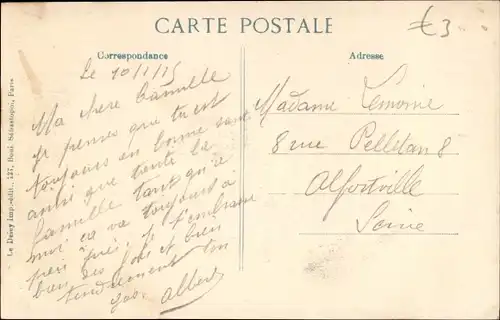 CARTE POSTALE
€3
Correspondance
Adresse
Le 10/1/15
Ma chere Camille
je penses que tu est
toujours en bonne santé
ainsi que toute la
famille tant qu'a
moi ca va toujours a
peu près. Je t'embrasse
bien des fois et bien
tendrement ton
Albert
Madame Lemoine
8 rue Pelletan 8
Alfortville
Seine
Le Deley Imp.-édit., 127, Boul. Sébastopol, Paris